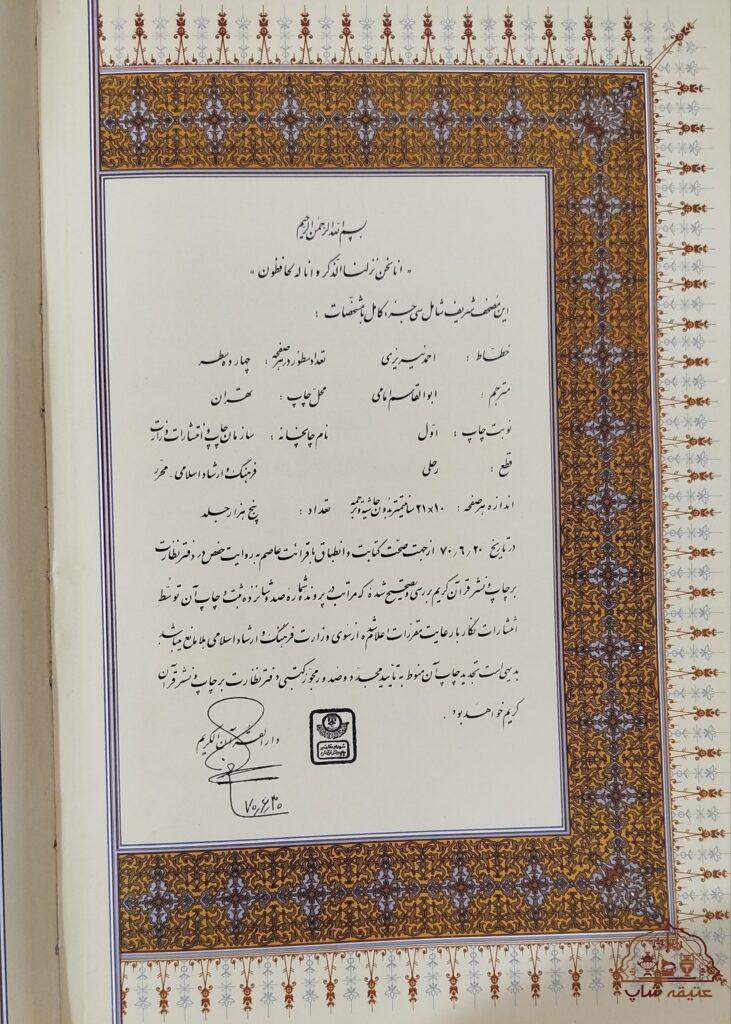 بسم الله الرحمن الرحیم
« انا نحن نزلنا الذکر و انا له لحافظون »
این مصحف شریف شامل سی جزء کامل با مشخصات :
خطاط : احمد نیریزی تعداد سطور در هر صفحه : چهارده سطر
مترجم : ابوالقاسم امامی محل چاپ : تهران
نوبت چاپ : اوّل نام چاپخانه : سازمان چاپ و انتشارات وزارت
قطع : رحلی فرهنگ و ارشاد اسلامی -
اندازه هر صفحه : ۱۰×۲۱ سانتیمتر بدون حاشیه و ترجمه تعداد : پنج هزار جلد
در تاریخ ۷۰٫۶٫۲۰ از جهت صحّت کتابت و انطباق با قرائت عاصم به روایت حفص در دفتر نظارت
بر چاپ و نشر قرآن کریم بررسی و تصحیح شده که مراتب در پرونده شماره صد و شانزده ثبت و چاپ آن توسّط
انتشارات نگار با رعایت مقررات اعلام شده از سوی وزارت فرهنگ و ارشاد اسلامی بلامانع میباشد.
بدیهی است تجدید چاپ آن منوط به تأیید مجدّد و صدور مجوز کتبی دفتر نظارت بر چاپ و نشر قرآن
کریم خواهد بود .
دارالقرآن الکریم
عتیقه شاپ